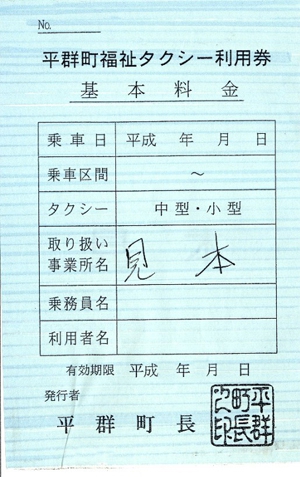 No.
平群町福祉タクシー利用券
基本料金
乗車日 平成 年 月 日
乗車区間 ～
タクシー 中型・小型
取り扱い
事業所名 見本
乗務員名
利用者名
有効期限 平成 年 月 日
発行者
平群町長
平群
町長
之印